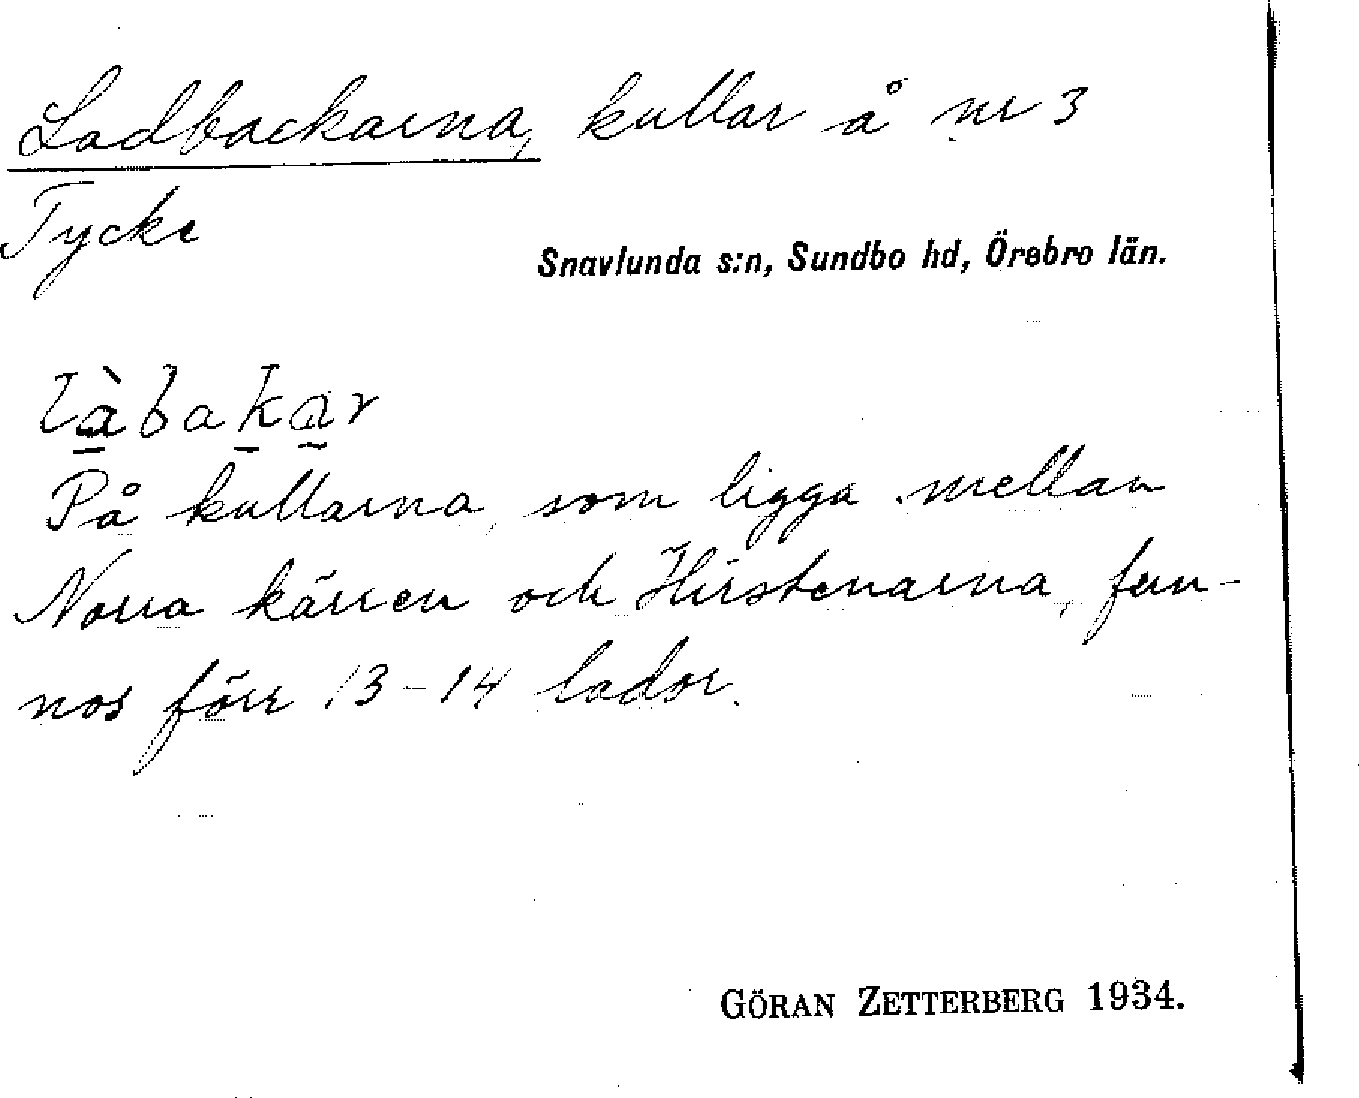 Ladbackarna, kullar å nr 3
Tycke
Snavlunda s:n, Sundbo hd, Örebro län.
làbakar
På kullarna, som ligga mellan
Norra kärren och Hirstenarna, fun-
nos förr 13-14 lador.
GÖRAN ZETTERBERG 1934.